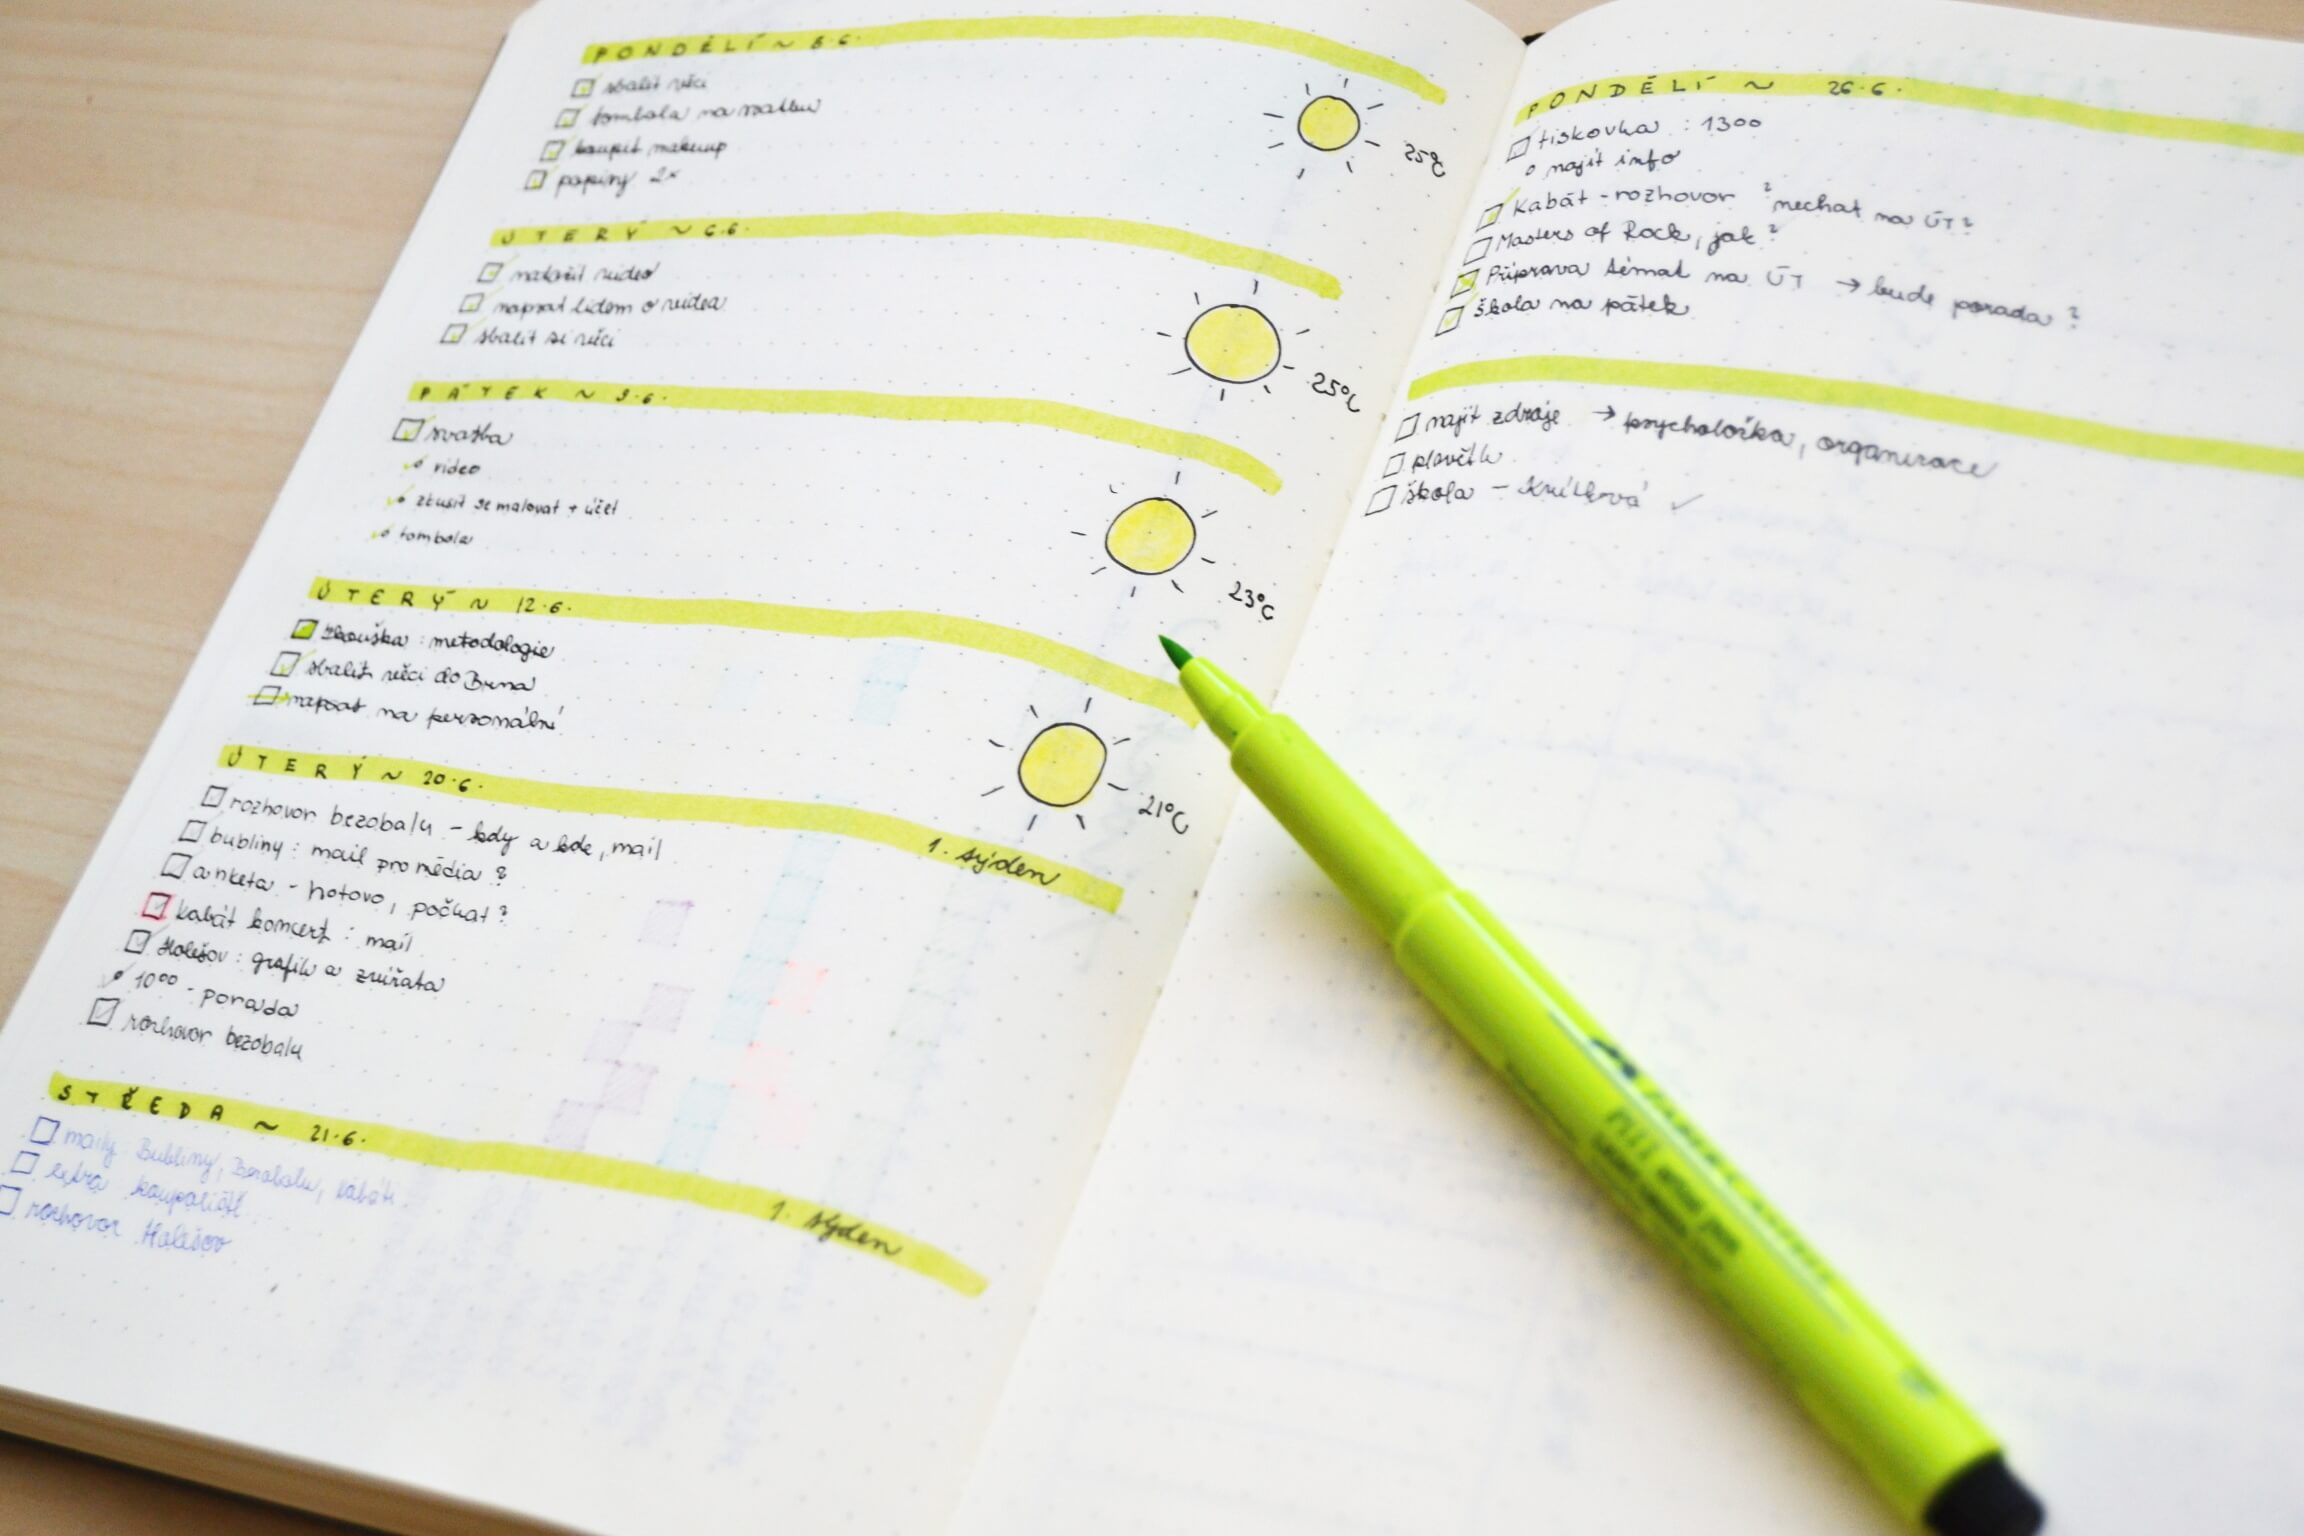 PONDĚLÍ ~ 5.6.
sbalit věci
tombola na svatbu
koupit makeup
papíry 2x
25°C
ÚTERÝ ~ 6.6.
natočit video
napsat lidem o videa
sbalit si věci
25°C
PÁTEK ~ 9.6.
svatba
video
zkusit se malovat + účet
tombola
23°C
ÚTERÝ ~ 12.6.
zkouška : metodologie
sbalit věci do Brna
napsat na personální
21°C
ÚTERÝ ~ 20.6.
1. týden
rozhovor bezobalu - kdy a kde, mail
bubliny : mail pro média ?
anketa - hotovo, počkat ?
kabát koncert : mail
Holešov : grafik a zvířata
10⁰⁰ - porada
rozhovor bezobalu
STŘEDA ~ 21.6.
1. týden
maily Bubliny, Bezobalu, kabáti
extra koupaliště
rozhovor Holešov
PONDĚLÍ ~ 26.6.
tiskovka : 13⁰⁰
najít info
Kabát - rozhovor ? nechat na ÚT ?
Masters of Rock, jak ?
Příprava témat na ÚT → bude porada ?
škola na pátek
najít zdroje → psycholožka, organizace
škola -